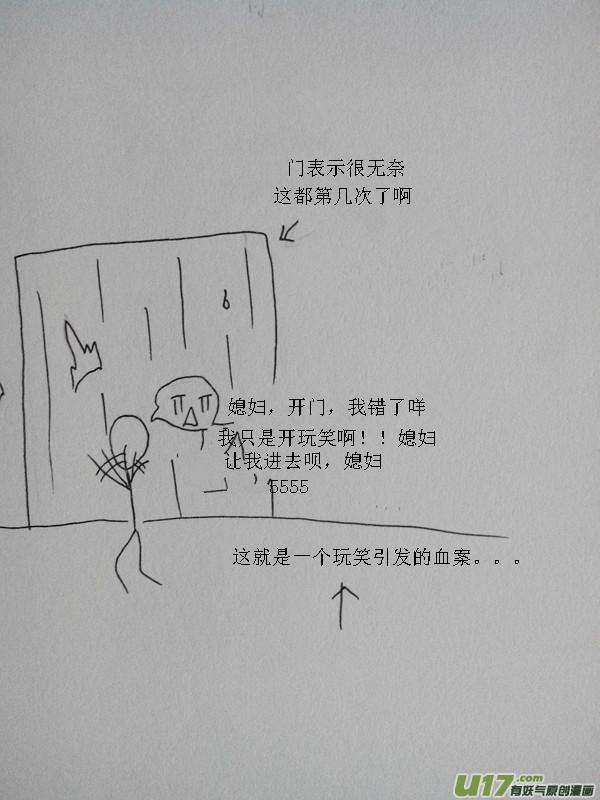 门表示很无奈
这都第几次了啊
媳妇，开门，我错了咩
我只是开玩笑啊！！媳妇
让我进去呗，媳妇
5555
这就是一个玩笑引发的血案。。。
U17.com
有妖气原创漫画